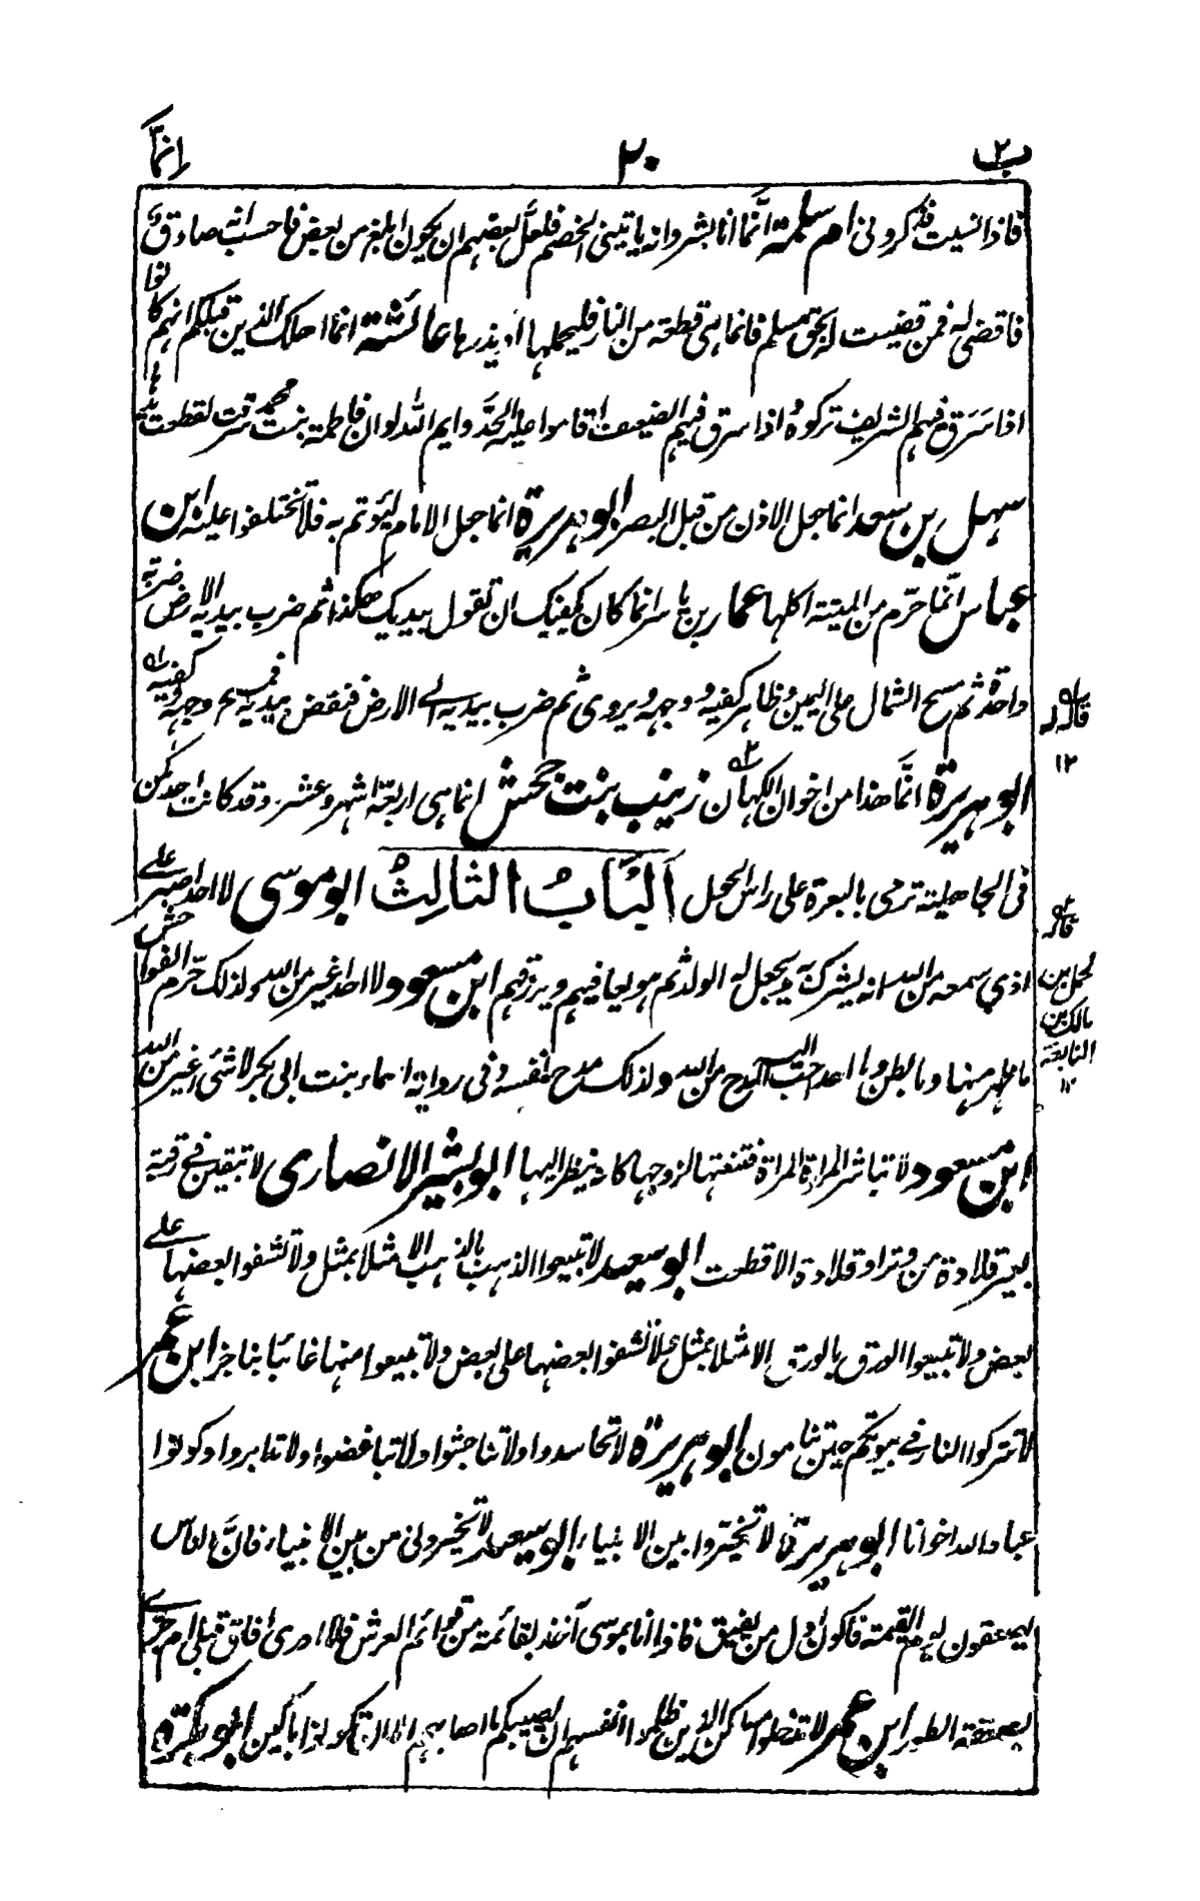 ب ٢
٢٠
انّما
فاذا نسيت فذكرونى ام سلمة انّما انا بشر وانه ياتينى الخصم فلعلّ بعضهم ان يكون ابلغ من بعض فاحسب انه صادق
فاقضى له فمن قضيت له بحق مسلم فانما هى قطعة من النار فليحملها او يذرها عائشة انما اهلك الذين قبلكم انهم كانوا
اذا سَرَق فيهم الشريف تركوهُ اذا سرق فيهم الضعيف اقاموا عليه الحدَّ وايم الله لو ان فاطمة بنت محمد سرقت لقطعت يدها
سهل بن سعد انما جعل الاذن من قبل البصر ابو هريرة انما جعل الامام ليؤتم به فلا تختلفوا عليه ابن
عباس انّما حرّم من الميتة اكلها عمار بن ياسر انما كان يكفيك ان تقول بيديك هكذا ثم ضرب بيديه الارض ضربة
واحدة ثم مسح الشمال على اليمين وظاهر كفيه ووجهه ويروى ثم ضرب بيديه الى الارض فنفض يديه فمسح وجهه وكفيه
ابو هريرة انّما هذا من اخوان الكهان زينب بنت جحش انما هى اربعة اشهر وعشر وقد كانت احدىكن
فى الجاهلية ترمى بالبعرة على راس الحول اَلْبَابُ الثالِثُ ابو موسى لا احد اصبر على
اذي سمعه من الله انه يشرك به ويجعل له الولد ثم هو يعافيهم ويرزقهم ابن مسعود لا احد اغير من الله ولذلك حرّم الفواحش
ما ظهر منها وما بطن ولا احد احب اليه المدح من الله ولذلك مدح نفسه وفى رواية اسماء بنت ابى بكر لا شئ اغير من الله
ابن مسعود لا تباشر المراة المراة فتنعتها لزوجها كانه ينظر اليها ابو بشير الانصارى لا تبقين فى رقبة
بعير قلادة من وتر او قلادة الا قطعت ابو سعيد لا تبيعوا الذهب بالذهب الا مثلا بمثل ولا تشفوا بعضها على
بعض ولا تبيعوا الورق بالورق الا مثلا بمثل ولا تشفوا بعضها على بعض ولا تبيعوا منها غائبًا بناجز ابن عمر
لا تتركوا النار فى بيوتكم حين تنامون ابو هريرة لا تحاسدوا ولا تناجشوا ولا تباغضوا ولا تدابروا وكونوا
عباد الله اخوانا ابو هريرة لا تخيّروا بين الانبياء ابو سعيد لا تخيرونى من بين الانبياء فانَّ الناس
يصعقون يوم القيمة فاكون اول من يفيق فاذا انا بموسى آخذ بقائمة من قوائم العرش فلا ادرى افاق قبلى ام جزى
بصعقة الطور ابن عمر لا تدخلوا مساكن الذين ظلموا انفسهم ان يصيبكم ما اصابهم الا ان تكونوا باكين ابو بكرة
قاله
١٢
قاله
لحمل بن
مالك بن
النابغة
١٢